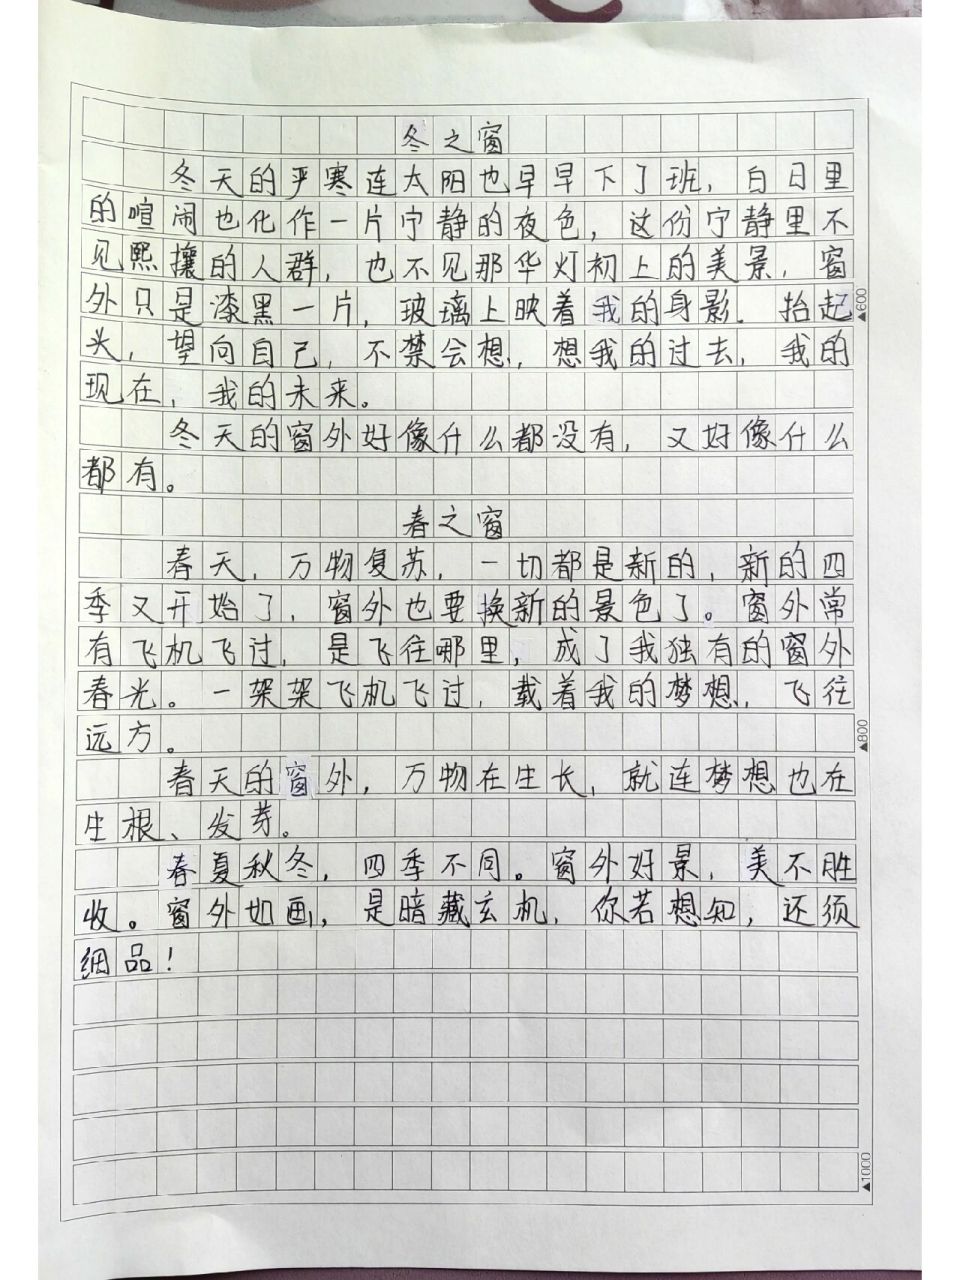 冬之窗
冬天的严寒连太阳也早早下了班，白日里
的喧闹也化作一片宁静的夜色，这份宁静里不
见熙攘的人群，也不见那华灯初上的美景，窗
外只是漆黑一片，玻璃上映着我的身影．抬起
▲600
头，望向自己，不禁会想，想我的过去，我的
现在，我的未来。
冬天的窗外好像什么都没有，又好像什么
都有。
春之窗
春天，万物复苏，一切都是新的，新的四
季又开始了，窗外也要换新的景色了。窗外常
有飞机飞过，是飞往哪里，成了我独有的窗外
春光。一架架飞机飞过，载着我的梦想，飞往
远方。
▲800
春天的窗外，万物在生长，就连梦想也在
生根、发芽。
春夏秋冬，四季不同。窗外好景，美不胜
收。窗外如画，是暗藏玄机，你若想知，还须
细品！
▲1000